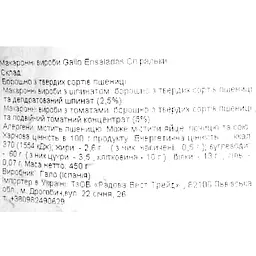 Макаронні вироби Gallo Ensaladas Спіральки
Склад:
Борошно з твердих сортів пшениці
Макаронні вироби з шпинатом: борошно з твердих сортів пшениці
та дегідратований шпинат (2,5%)
Макаронні вироби з томатами: борошно з твердих сортів пшениці
та подвійний томатний концентрат (5%)
Алергени: містить пшеницю. Може містити яйця, гірчицю та сою.
Харчова цінність в 100 г продукту: Енергетична цінність - ккал
370 (1554 кДж); жири - 2,6 г (з них насичені 0,5 г); вуглеводи
- 60 г (з них цукри - 3,5 , клітковина - 10 г) білки - 13 г , сіль -
0,07 г. Маса нетто: 450 г
Виробник: Гало (Іспанія)
Імпортер в Україні: ТзОВ «Радова Вест Трейд», 82106 Львівська
обл., м. Дрогобич, вул. 22 січня, 26
Т.+380982490829